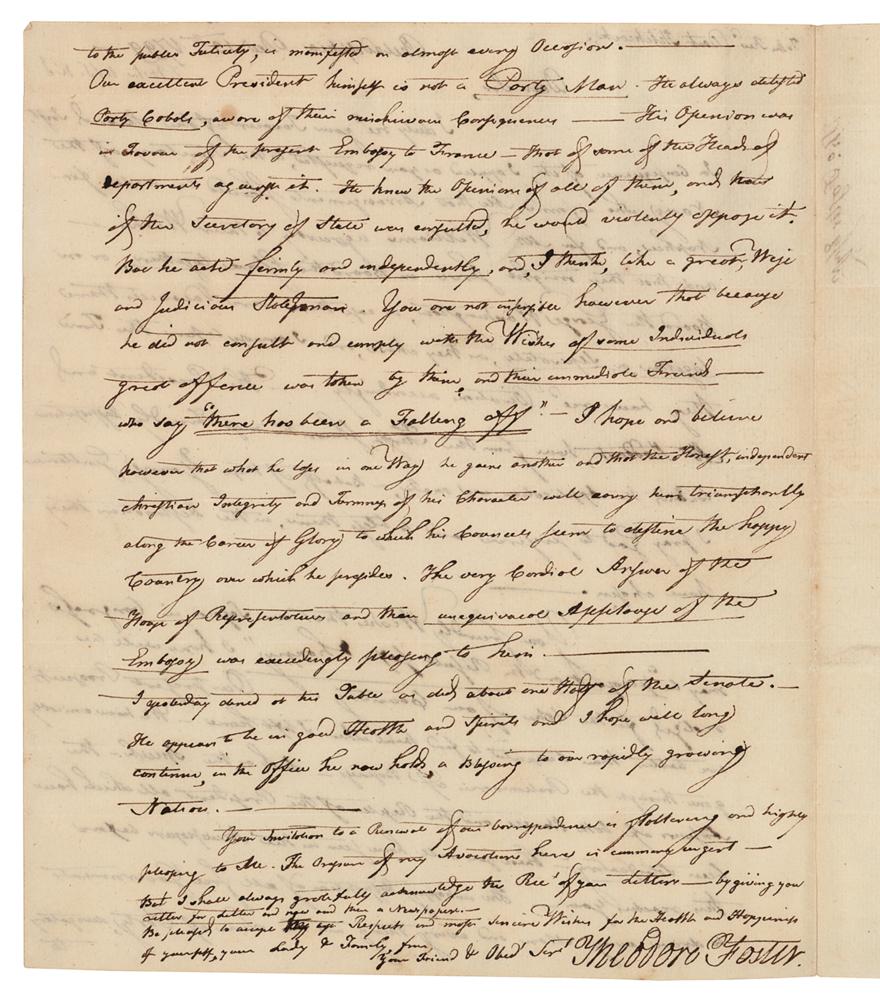 to the public Felicity, is manifested on almost every Occasion. —
Our excellent President himself is not a Party Man. He always detested
Party Cabals, aware of their mischievous Consequences — His Opinion was
in Favour of the present Embassy to France — that of some of the Heads of
Departments against it. He knew the Opinions of all of them, and that
if the Secretary of State was consulted, he would violently oppose it.
But he acted firmly and independently, and, I think, like a great, Wise
and Judicious Statesman. You are not insensible however that because
he did not consult and comply with the Wishes of some Individuals
great offence was taken by them, and their immediate Friends —
who say "there has been a Falling off" — I hope and believe
however that what he loses in one Way he gains another and that the Honest, independent
christian Integrity and Firmness of his Character will carry him triumphantly
along the Career of Glory to which his Councels seem to destine the happy
Country over which he presides. The very Cordial Answer of the
House of Representatives and their unequivocal Applause of the
Embassy was exceedingly pleasing to him. —
I yesterday dined at his Table as did about one Half of the Senate. —
He appears to be in good Health and Spirits and I hope will long
continue, in the office he now holds, a Blessing to our rapidly growing
Nation. —
Your Invitation to a Renewal of our Correspondence is flattering and highly
pleasing to Me. The Pressure of my Avocations here is urgent —
But I shall always gratefully acknowledge the Rect of your Letters — by giving you
Letter for Letter and now and then a Newspaper. —
Be pleased to accept Respects and most sincere Wishes for the Health and Happiness
of yourself, your Lady & Family, from
Your Friend & Obedt Servt Theodore Foster.